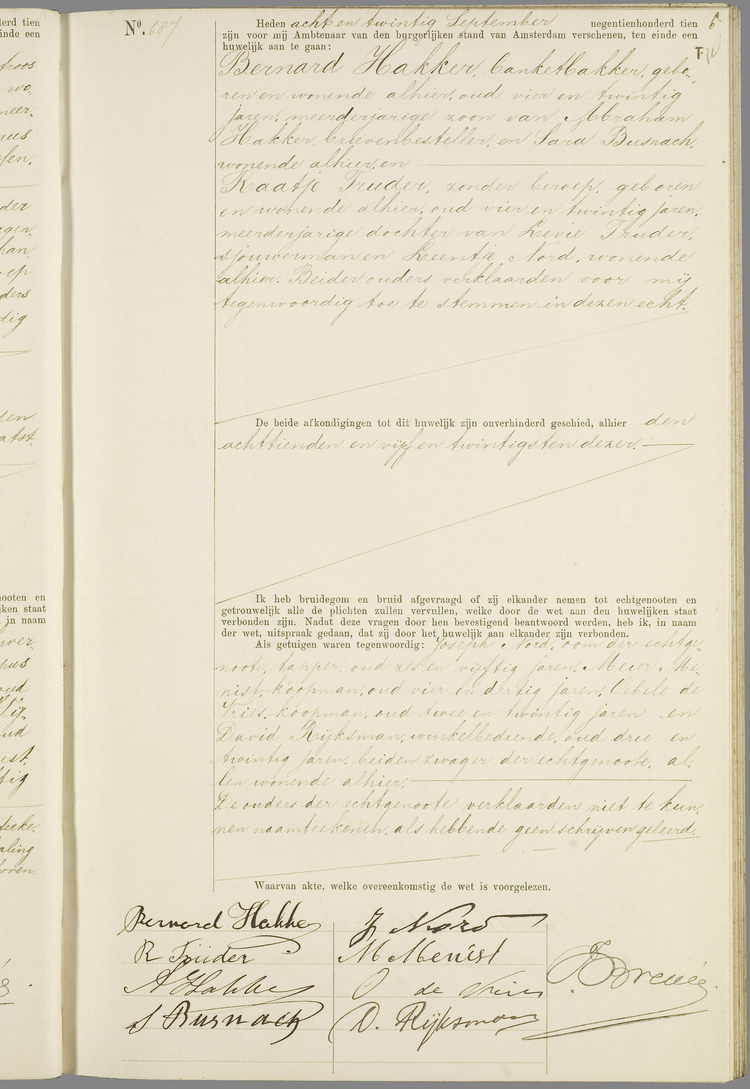 Nº. 687
Heden acht en twintig September negentienhonderd tien
zijn voor mij Ambtenaar van den burgerlijken stand van Amsterdam verschenen, ten einde een
huwelijk aan te gaan:
Bernard Hakker, banketbakker, gebo-
ren en wonende alhier, oud vier en twintig
jaren, meerderjarige zoon van Abraham
Hakker, brievenbesteller, en Sara Busnach,
wonende alhier, en
Kaatje Truder, zonder beroep, geboren
en wonende alhier, oud vier en twintig jaren,
meerderjarige dochter van Levie Truder,
sjouwerman en Leentje Nord, wonende
alhier. Beider ouders verklaarden voor mij
tegenwoordig toe te stemmen in dezen echt.
De beide afkondigingen tot dit huwelijk zijn onverhinderd geschied, alhier den
achttienden en vijf en twintigsten dezer.
Ik heb bruidegom en bruid afgevraagd of zij elkander nemen tot echtgenooten en
getrouwelijk alle de plichten zullen vervullen, welke door de wet aan den huwelijken staat
verbonden zijn. Nadat deze vragen door hen bevestigend beantwoord werden, heb ik, in naam
der wet, uitspraak gedaan, dat zij door het huwelijk aan elkander zijn verbonden.
Als getuigen waren tegenwoordig: Joseph Nord, oom der echtge-
noote, tapper, oud zes en vijftig jaren, Meier Me-
nist, koopman, oud vier en dertig jaren, de
Vries, koopman, oud twee en twintig jaren en
David Rijksman, winkelbediende, oud drie en
twintig jaren, beiden zwager der echtgenoote, al-
len wonende alhier.
De ouders der echtgenoote verklaarden niet te kun-
nen naamteekenen, als hebbende geen schrijven geleerd.
Waarvan akte, welke overeenkomstig de wet is voorgelezen.
Bernard Hakker
J Nord
K Truder
M Menist
A Hakker
de Vries
S Busnach
D. Rijksman